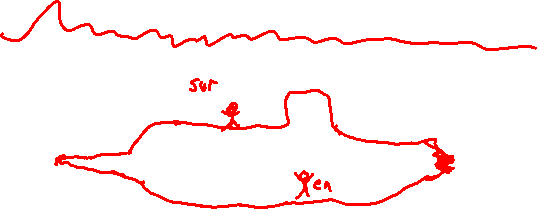 sur
en